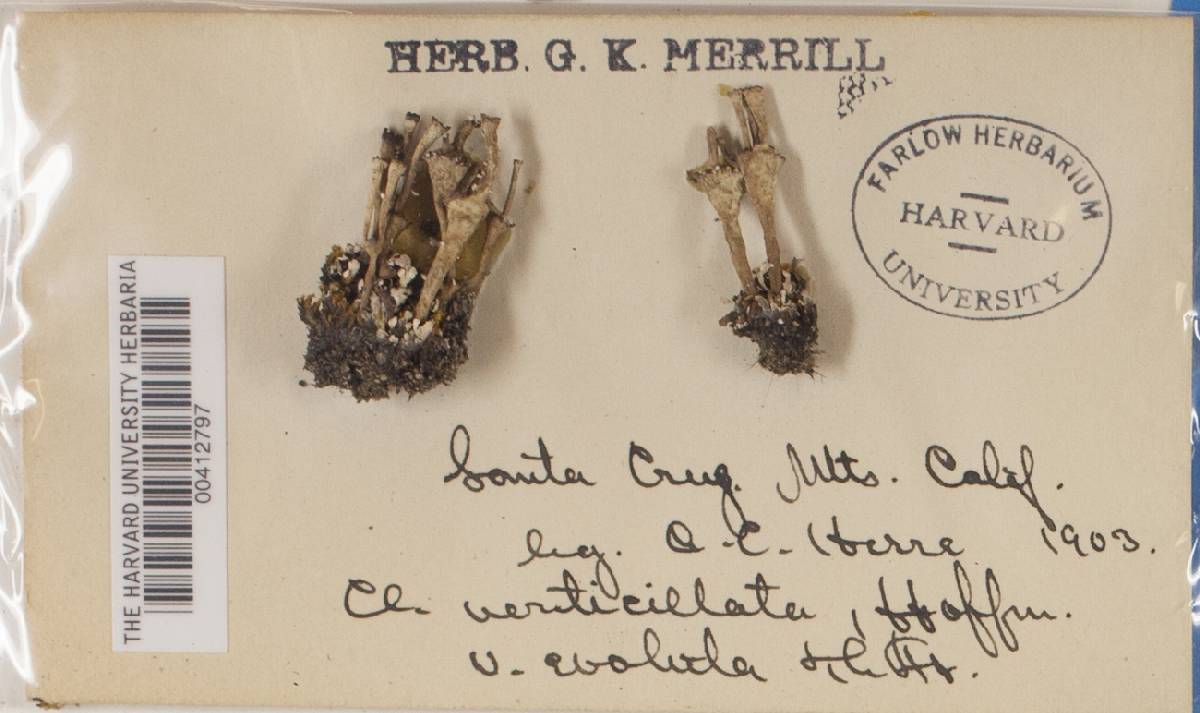 HERB. G. K. MERRILL
FARLOW HERBARIUM
HARVARD
UNIVERSITY
THE HARVARD UNIVERSITY HERBARIA
00412797
Santa Cruz. Mts. Calif.
leg. A. C. Herre 1903.
Cl. verticillata, Hoffm.
v. evoluta Th. Fr.